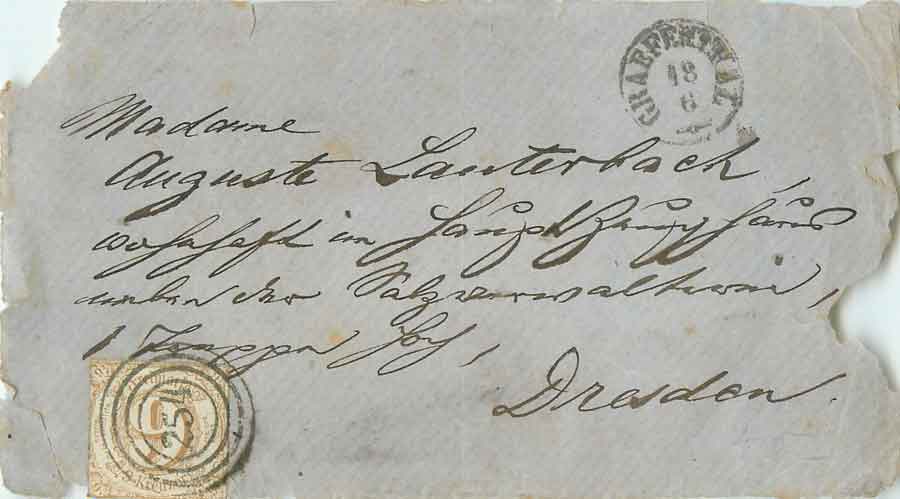 GRAEFENTHAL
18
6
Madame
Auguste Lauterbach,
wohnhaft im Hauptzeughaus
neben der Salzverwalterei,
1 Treppe hoch,
Dresden.
9
254